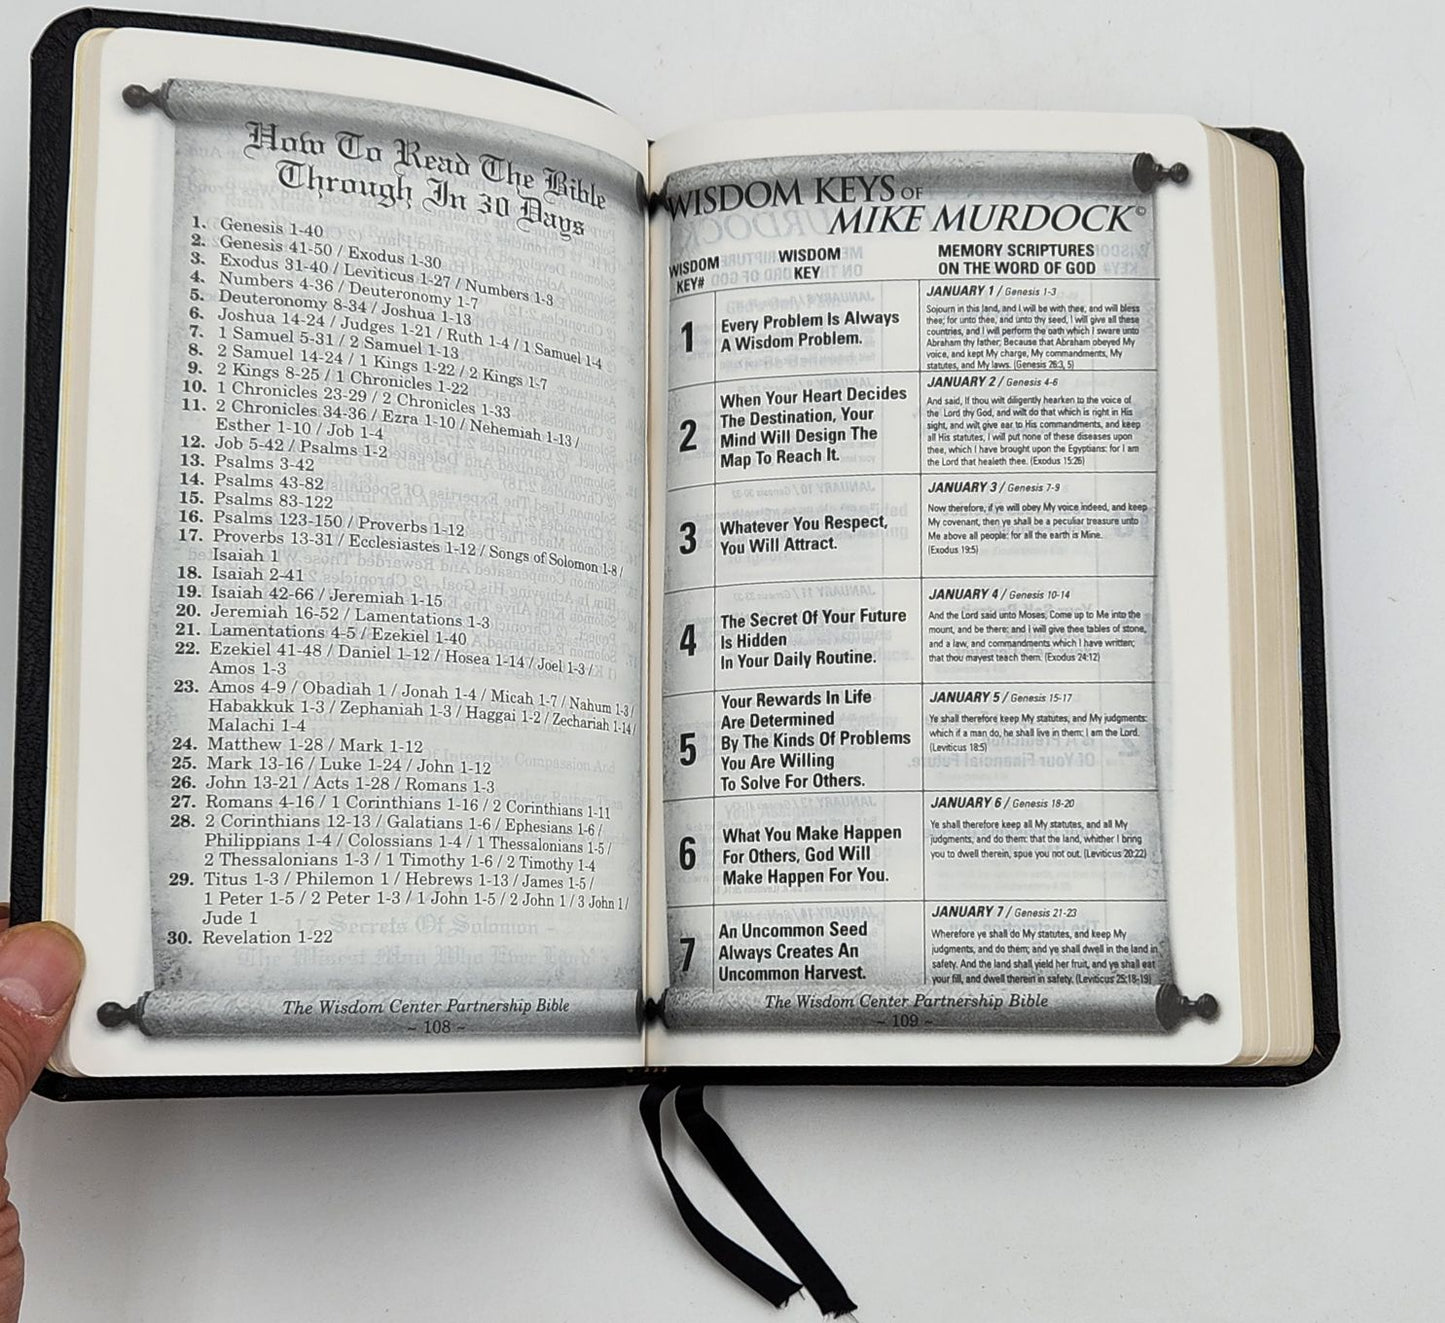 How To Read The Bible
Through In 30 Days
1. Genesis 1-40
2. Genesis 41-50 / Exodus 1-30
3. Exodus 31-40 / Leviticus 1-27 / Numbers 1-3
4. Numbers 4-36 / Deuteronomy 1-7
5. Deuteronomy 8-34 / Joshua 1-13
6. Joshua 14-24 / Judges 1-21 / Ruth 1-4 / 1 Samuel 1-4
7. 1 Samuel 5-31 / 2 Samuel 1-13
8. 2 Samuel 14-24 / 1 Kings 1-22 / 2 Kings 1-7
9. 2 Kings 8-25 / 1 Chronicles 1-22
10. 1 Chronicles 23-29 / 2 Chronicles 1-33
11. 2 Chronicles 34-36 / Ezra 1-10 / Nehemiah 1-13 /
Esther 1-10 / Job 1-4
12. Job 5-42 / Psalms 1-2
13. Psalms 3-42
14. Psalms 43-82
15. Psalms 83-122
16. Psalms 123-150 / Proverbs 1-12
17. Proverbs 13-31 / Ecclesiastes 1-12 / Songs of Solomon 1-8 /
Isaiah 1
18. Isaiah 2-41
19. Isaiah 42-66 / Jeremiah 1-15
20. Jeremiah 16-52 / Lamentations 1-3
21. Lamentations 4-5 / Ezekiel 1-40
22. Ezekiel 41-48 / Daniel 1-12 / Hosea 1-14 / Joel 1-3 /
Amos 1-3
23. Amos 4-9 / Obadiah 1 / Jonah 1-4 / Micah 1-7 / Nahum 1-3 /
Habakkuk 1-3 / Zephaniah 1-3 / Haggai 1-2 / Zechariah 1-14 /
Malachi 1-4
24. Matthew 1-28 / Mark 1-12
25. Mark 13-16 / Luke 1-24 / John 1-12
26. John 13-21 / Acts 1-28 / Romans 1-3
27. Romans 4-16 / 1 Corinthians 1-16 / 2 Corinthians 1-11
28. 2 Corinthians 12-13 / Galatians 1-6 / Ephesians 1-6 /
Philippians 1-4 / Colossians 1-4 / 1 Thessalonians 1-5 /
2 Thessalonians 1-3 / 1 Timothy 1-6 / 2 Timothy 1-4
29. Titus 1-3 / Philemon 1 / Hebrews 1-13 / James 1-5 /
1 Peter 1-5 / 2 Peter 1-3 / 1 John 1-5 / 2 John 1 / 3 John 1 /
Jude 1
30. Revelation 1-22
The Wisdom Center Partnership Bible
~ 108 ~
WISDOM KEYS OF
MIKE MURDOCK©
WISDOM KEY#
WISDOM KEY
MEMORY SCRIPTURES
ON THE WORD OF GOD
1
Every Problem Is Always
A Wisdom Problem.
JANUARY 1 / Genesis 1-3
Sojourn in this land, and I will be with thee, and will bless
thee; for unto thee, and unto thy seed, I will give all these
countries, and I will perform the oath which I sware unto
Abraham thy father; Because that Abraham obeyed My
voice, and kept My charge, My commandments, My
statutes, and My laws. (Genesis 26:3, 5)
2
When Your Heart Decides
The Destination, Your
Mind Will Design The
Map To Reach It.
JANUARY 2 / Genesis 4-6
And said, If thou wilt diligently hearken to the voice of
the Lord thy God, and wilt do that which is right in His
sight, and wilt give ear to His commandments, and keep
all His statutes, I will put none of these diseases upon
thee, which I have brought upon the Egyptians: for I am
the Lord that healeth thee. (Exodus 15:26)
3
Whatever You Respect,
You Will Attract.
JANUARY 3 / Genesis 7-9
Now therefore, if ye will obey My voice indeed, and keep
My covenant, then ye shall be a peculiar treasure unto
Me above all people: for all the earth is Mine.
(Exodus 19:5)
4
The Secret Of Your Future
Is Hidden
In Your Daily Routine.
JANUARY 4 / Genesis 10-14
And the Lord said unto Moses, Come up to Me into the
mount, and be there: and I will give thee tables of stone,
and a law, and commandments which I have written;
that thou mayest teach them. (Exodus 24:12)
5
Your Rewards In Life
Are Determined
By The Kinds Of Problems
You Are Willing
To Solve For Others.
JANUARY 5 / Genesis 15-17
Ye shall therefore keep My statutes, and My judgments:
which if a man do, he shall live in them: I am the Lord.
(Leviticus 18:5)
6
What You Make Happen
For Others, God Will
Make Happen For You.
JANUARY 6 / Genesis 18-20
Ye shall therefore keep all My statutes, and all My
judgments, and do them: that the land, whither I bring
you to dwell therein, spue you not out. (Leviticus 20:22)
7
An Uncommon Seed
Always Creates An
Uncommon Harvest.
JANUARY 7 / Genesis 21-23
Wherefore ye shall do My statutes, and keep My
judgments, and do them; and ye shall dwell in the land in
safety. And the land shall yield her fruit, and ye shall eat
your fill, and dwell therein in safety. (Leviticus 25:18-19)
The Wisdom Center Partnership Bible
~ 109 ~